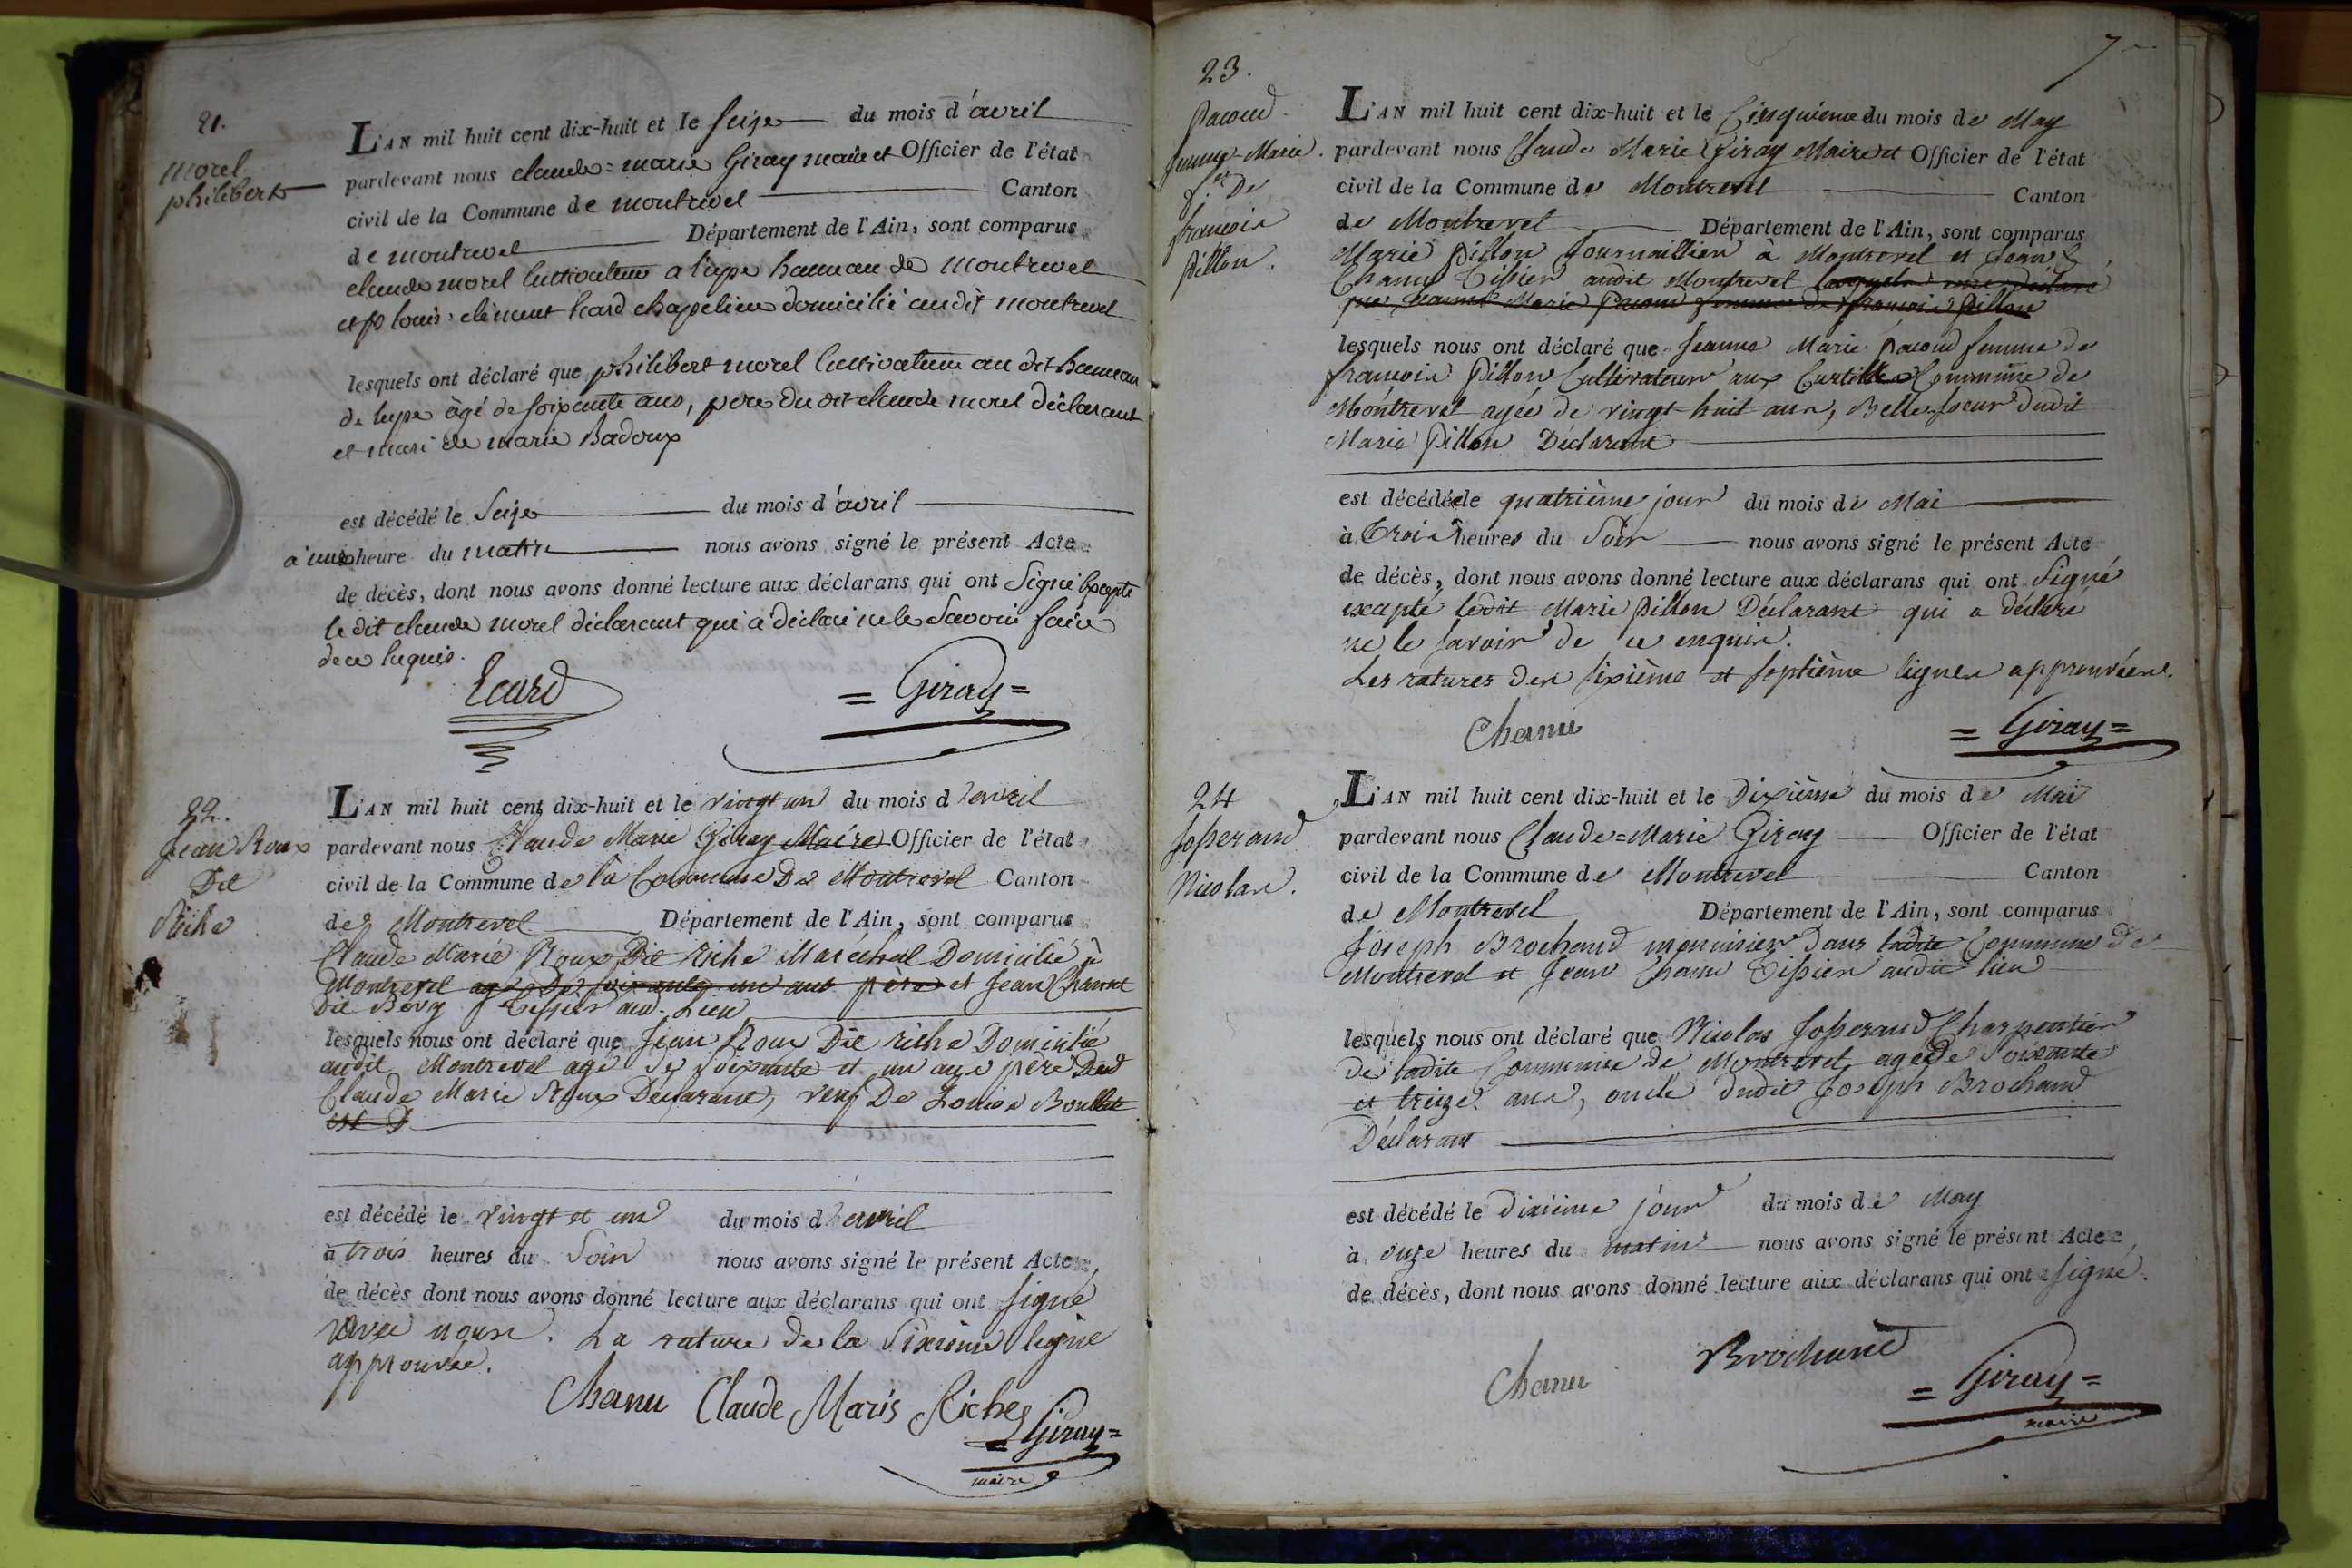 21.
Morel
philibert
L'AN mil huit cent dix-huit et le seize du mois d'avril
pardevant nous claude=marie Giray maire et Officier de l'état
civil de la Commune de montrevel Canton
de montrevel Département de l'Ain, sont comparus
claude morel Cultivateur a hameau de montrevel
et louis clément Ecard chapelier domicilié audit montrevel
lesquels ont déclaré que philibert morel Cultivateur au dit hameau
de âgé de soixante ans, père du dit claude morel déclarant
et mari de marie Badoux
est décédé le Seize du mois d'avril
à une heure du matin nous avons signé le présent Acte
de décès, dont nous avons donné lecture aux déclarans qui ont Signé Excepté
le dit claude morel déclarant qui a déclaré ne le Savoir faire
de ce requis.
Ecard = Giray =
22.
Jean Roux
Dit
Riche
L'AN mil huit cent dix-huit et le vingt un du mois d'avril
pardevant nous Claude Marie Giray Maire Officier de l'état
civil de la Commune de la Commune De Montrevel Canton
de Montrevel Département de l'Ain, sont comparus
Claude Marie Roux Dit riche Maréchal Domicilié à
Montrevel agé de soixante un ans père et Jean Chanut
Dit Tissier aud. Lieu
lesquels nous ont déclaré que Jean Roux Dit riche Domicilié
audit Montrevel agé de soixante et un ans père Dud
Claude Marie Roux Déclarant, veuf De Louise
est D
est décédé le vingt et un du mois d'avril
à trois heures du Soir nous avons signé le présent Acte
de décès dont nous avons donné lecture aux déclarans qui ont signé
avec nous. La rature de la Sixième ligne
approuvée.
Chanu Claude Maris Riches = Giray =
maire
7
23.
Pacoud
Jeanne-Marie.
f.e De
françois
Pillon.
L'AN mil huit cent dix-huit et le Cinquième du mois de May
pardevant nous Claude Marie Giray Maire et Officier de l'état
civil de la Commune de Montrevel Canton
de Montrevel Département de l'Ain, sont comparus
Marie Pillon Journaillier à Montrevel et Jean
Chanu Tissier audit Montrevel lesquels nous déclaré
que Jeanne Marie Pacoud femme de françois Pillon
lesquels nous ont déclaré que Jeanne Marie Pacoud femme de
françois Pillon Cultivateur aux Curtilles Commune de
Montrevel agée de vingt huit ans, Belle-soeur dudit
Marie Pillon Déclarant
est décédée le quatrième jour du mois de Mai
à Trois heures du Soir nous avons signé le présent Acte
de décès, dont nous avons donné lecture aux déclarans qui ont Signé
excepté ledit Marie Pillon Déclarant qui a déclaré
ne le savoir de ce enquis.
Les ratures des sixième et septième lignes approuvées.
Chanu = Giray =
24
Josserand
Nicolas.
L'AN mil huit cent dix-huit et le Dixième du mois de Mai
pardevant nous Claude=Marie Giray Officier de l'état
civil de la Commune de Montrevel Canton
de Montrevel Département de l'Ain, sont comparus
Joseph Brochand menuisier dans ladite Commune de
Montrevel et Jean Chanu Tissier audit lieu
lesquels nous ont déclaré que Nicolas Josserand Charpentier
de ladite Commune de Montrevel, agé de Soixante
et treize ans, oncle dudit Joseph Brochand
Déclarant
est décédé le Dixième jour du mois de May
à onze heures du matin nous avons signé le présent Acte
de décès, dont nous avons donné lecture aux déclarans qui ont signé.
Chanu Brochand = Giray =
maire